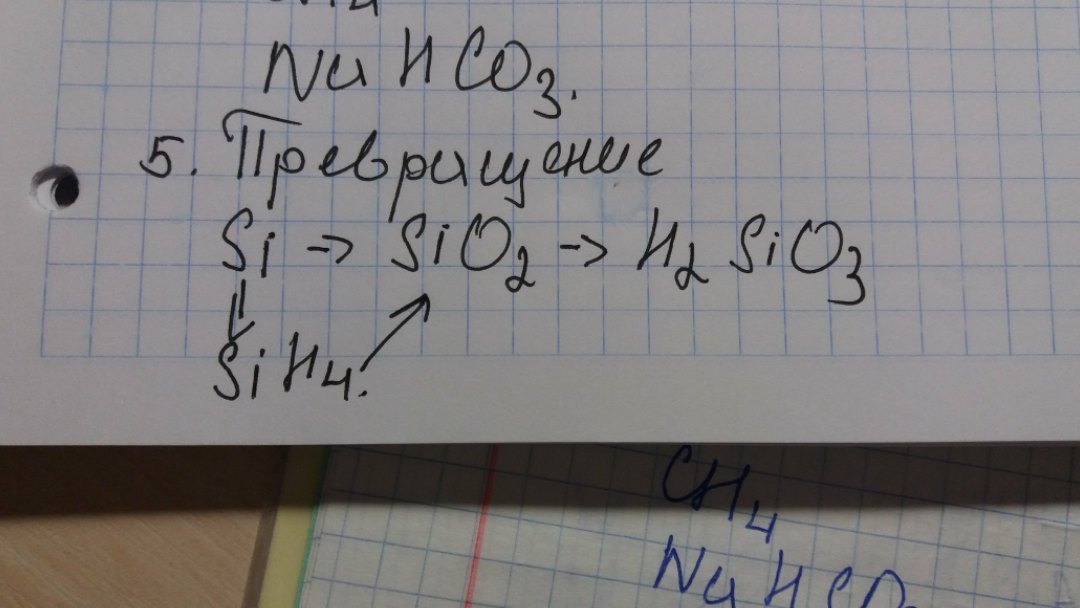 NaHCO3.
5. Превращение
Si → SiO2 → H2SiO3
SiH4.
CH4
NaHCO